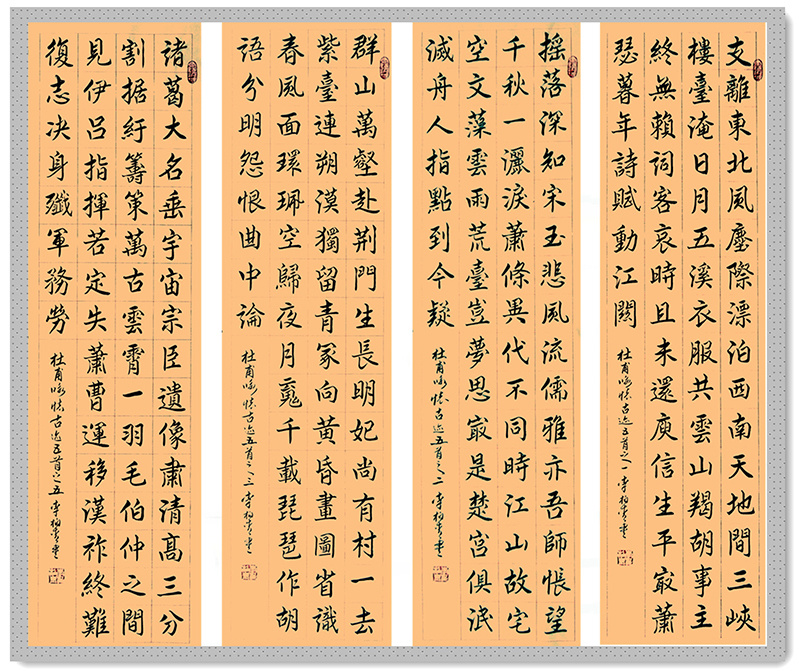 支離東北風塵際漂泊西南天地間三峽
樓臺淹日月五溪衣服共雲山羯胡事主
終無賴詞客哀時且未還庾信生平最蕭
瑟暮年詩賦動江關
杜甫咏懷古迹五首之一 李柏青書
搖落深知宋玉悲風流儒雅亦吾師悵望
千秋一灑淚蕭條異代不同時江山故宅
空文藻雲雨荒臺豈夢思最是楚宮俱泯
滅舟人指點到今疑
杜甫咏懷古迹五首之二 李柏青書
群山萬壑赴荊門生長明妃尚有村一去
紫臺連朔漠獨留青冢向黃昏畫圖省識
春風面環珮空歸夜月魂千載琵琶作胡
語分明怨恨曲中論
杜甫咏懷古迹五首之三 李柏青書
諸葛大名垂宇宙宗臣遺像肅清高三分
割据紆籌策萬古雲霄一羽毛伯仲之間
見伊呂指揮若定失蕭曹運移漢祚終難
復志决身殲軍務勞
杜甫咏懷古迹五首之五 李柏青書